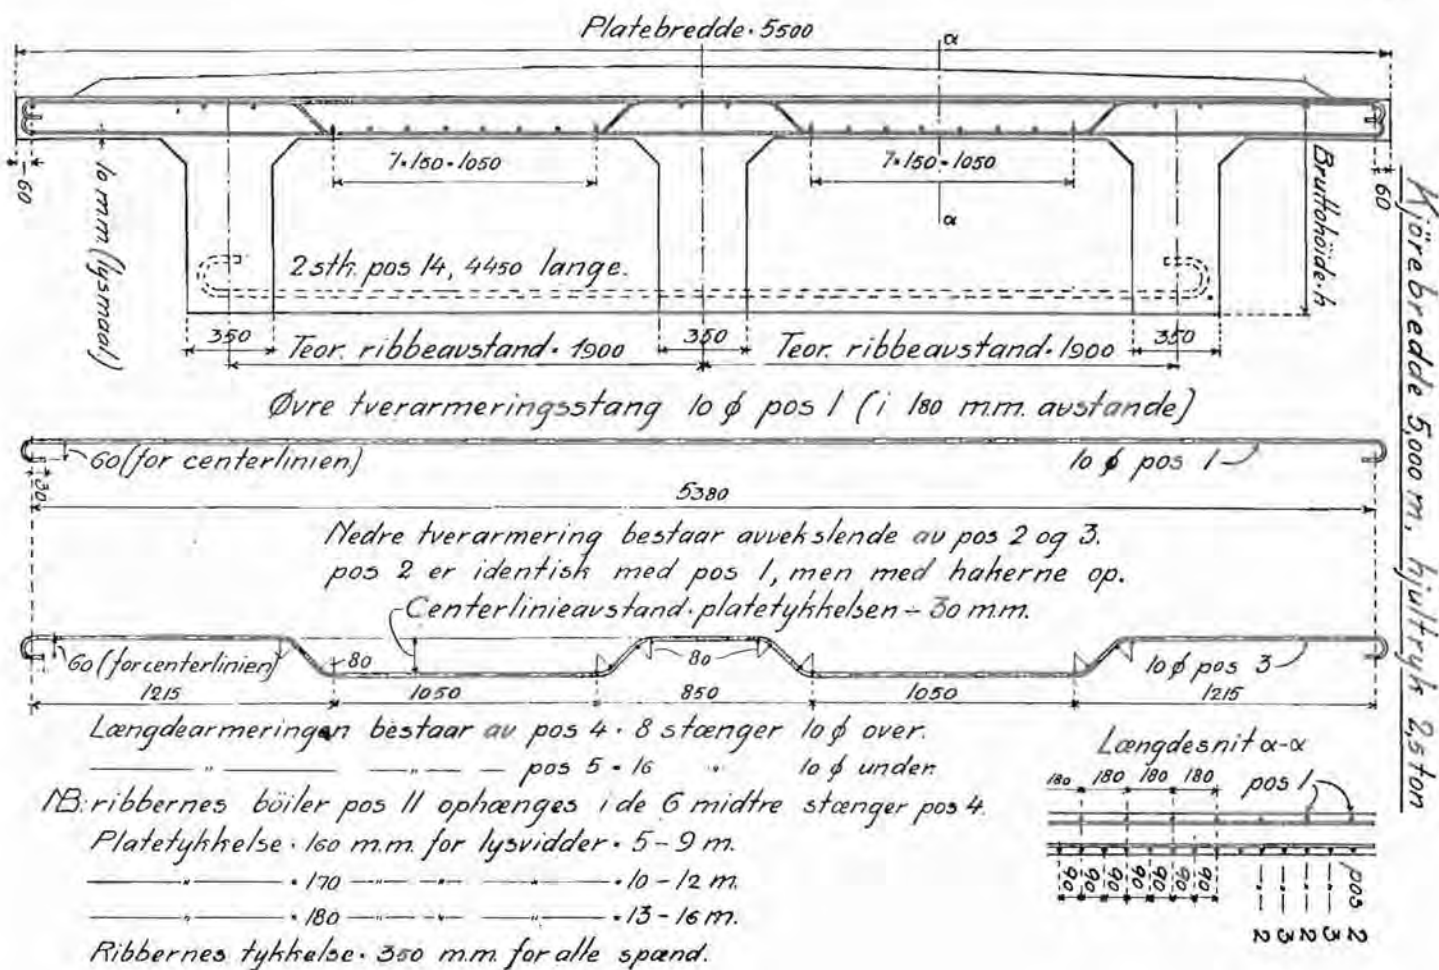 Platebredde · 5500
α
7·150·1050
7·150·1050
60
60
10 m.m (lysmaal)
α
Bruttohöide·h
2 stk. pos 14, 4450 lange.
350
350
350
Teor. ribbeavstand · 1900
Teor. ribbeavstand · 1900
Øvre tverarmeringsstang 10 ϕ pos 1 (i 180 m.m. avstande)
60 (for centerlinien)
10 ϕ pos 1
30
5380
Nedre tverarmering bestaar avvekslende av pos 2 og 3.
pos 2 er identisk med pos 1, men med hakerne op.
Centerlinieavstand · platetykkelsen – 30 m.m.
60 (for centerlinien)
80
80
10 ϕ pos 3
1215
1050
850
1050
1215
Længdearmeringen bestaar av pos 4 · 8 stænger 10 ϕ over.
— " — — " — pos 5 · 16 " 10 ϕ under.
NB: ribbernes böiler pos 11 ophænges i de 6 midtre stænger pos 4.
Platetykkelse · 160 m.m. for lysvidder · 5 – 9 m.
— " — · 170 — " — — " — · 10 – 12 m.
— " — · 180 — " — — " — · 13 – 16 m.
Ribbernes tykkelse · 350 m.m. for alle spænd.
Længdesnit α-α
180 180 180 180
pos 1
90 90 90 90 90 90 90
pos 2
" 3
" 2
" 3
" 2
Kjörebredde 5,000 m, hjultryk 2,5 ton